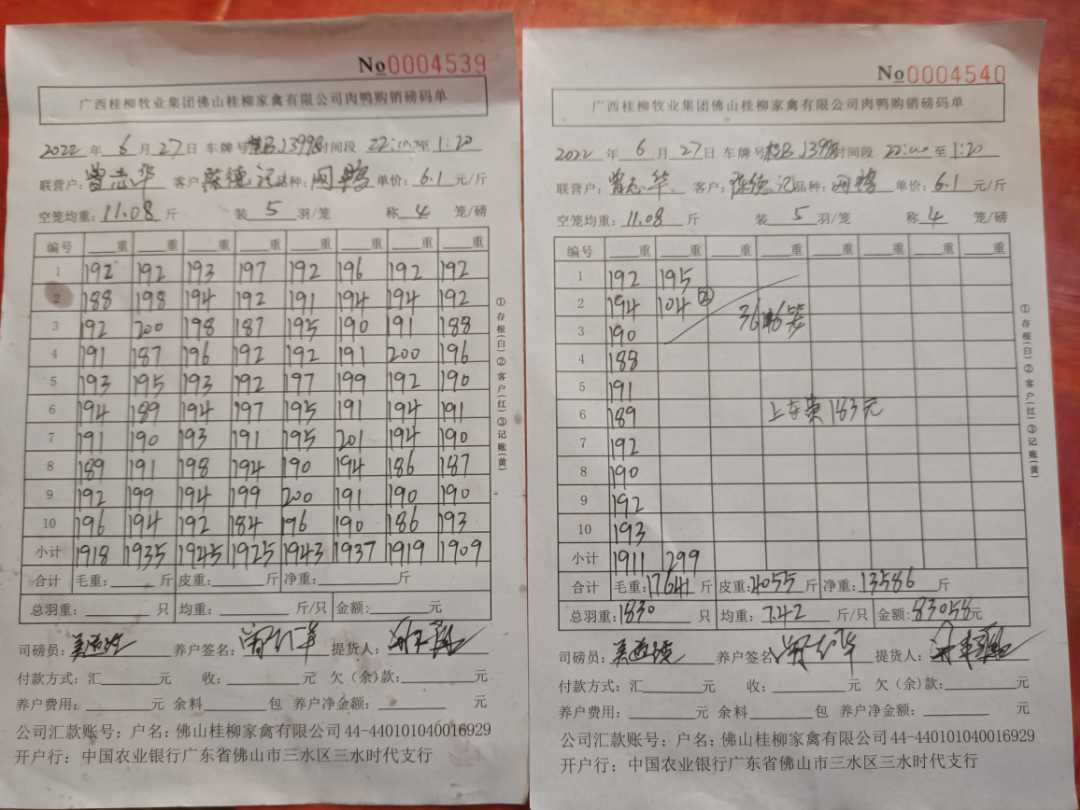 No0004539
广西桂柳牧业集团佛山桂柳家禽有限公司肉鸭购销磅码单
2022 年 6 月 27 日 车牌号 桂B J3998 时间段 22:00 至 1:20
联营户: 曾志华 客户 陈德记 品种: 网鸭 单价: 6.1 元/斤
空笼均重: 11.08 斤 装 5 羽/笼 称 4 笼/磅
编号 重 重 重 重 重 重 重 重
1 192 192 193 197 192 196 192 192
2 188 198 194 192 191 194 194 192
3 192 200 198 187 195 190 191 188
4 191 187 196 192 192 191 200 196
5 193 195 193 192 197 199 192 190
6 194 189 194 197 195 191 194 191
7 191 190 193 191 195 201 194 190
8 189 191 198 194 190 194 186 187
9 192 199 194 199 200 191 190 190
10 196 194 192 184 196 190 186 193
小计 1918 1935 1945 1925 1943 1937 1919 1909
合计 毛重: 斤 皮重: 斤 净重: 斤
总羽重: 只 均重: 斤/只 金额: 元
司磅员: 养户签名: 提货人:
付款方式: 汇 元 收: 元 欠(余)款: 元
养户费用: 元 余料 包 养户净金额: 元
公司汇款账号: 户名: 佛山桂柳家禽有限公司 44-440101040016929
开户行: 中国农业银行广东省佛山市三水区三水时代支行
①存根(白)②客户(红)③记账(黄)
No0004540
广西桂柳牧业集团佛山桂柳家禽有限公司肉鸭购销磅码单
2022 年 6 月 27 日 车牌号 桂B J3998 时间段 22:00 至 1:20
联营户: 曾志华 客户: 陈德记 品种: 网鸭 单价: 6.1 元/斤
空笼均重: 11.08 斤 装 5 羽/笼 称 4 笼/磅
编号 重 重 重 重 重 重 重 重
1 192 195
2 194 104 ②
3 190 366笼
4 188
5 191
6 189 上车费183元
7 192
8 190
9 192
10 193
小计 1911 299
合计 毛重: 17641 斤 皮重: 4055 斤 净重: 13586 斤
总羽重: 1830 只 均重: 7.42 斤/只 金额: 83058 元
司磅员: 养户签名 提货人:
付款方式: 汇 元 收: 元 欠(余)款: 元
养户费用: 元 余料 包 养户净金额: 元
公司汇款账号: 户名: 佛山桂柳家禽有限公司 44-440101040016929
开户行: 中国农业银行广东省佛山市三水区三水时代支行
①存根(白)②客户(红)③记账(黄)